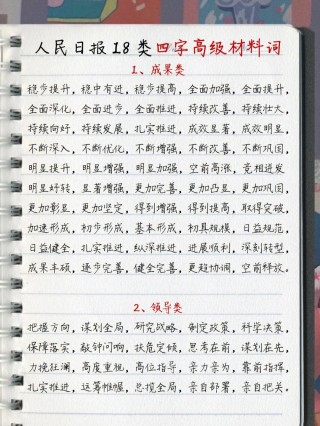 人民日报18类四字高级材料词
1、成果类
稳步提升，稳中有进，稳步提高，全面加强，全面提升，
全面深化，全面进步，全面推进，持续改善，持续壮大，
持续向好，持续发展，扎实推进，成效显著，成效明显，
不断深入，不断优化，不断增强，不断改善，不断巩固，
明显提升，明显增强，明显加强，空前高涨，竞相迸发
明显好转，显著增强，更加完善，更加凸显，更加巩固，
更加彰显，更加坚定，得到增强，得到提高，取得突破，
加速形成，初步形成，基本形成，初具规模，日益规范，
日益健全，扎实推进，纵深推进，进展顺利，深刻转型，
成果丰硕，逐步完善，健全完善，更趋协调，空前释放，
2、领导类
把握方向，谋划全局，研究战略，制定政策，科学决策，
保障落实，敲钟问响，扶危定倾，思考在前，谋划在先，
力挽狂澜，高度重视，高位指导，亲力亲为，靠前指挥，
扎实推进，运筹帷幄，总揽全局，亲自部署，亲自把关，